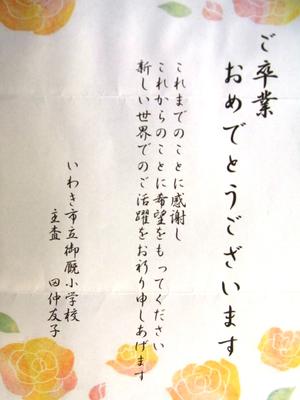 ご卒業
おめでとうございます
これまでのことに感謝し
これからのことに希望をもってください
新しい世界でのご活躍をお祈り申しあげます
いわき市立御厩小学校
主査 田仲友子